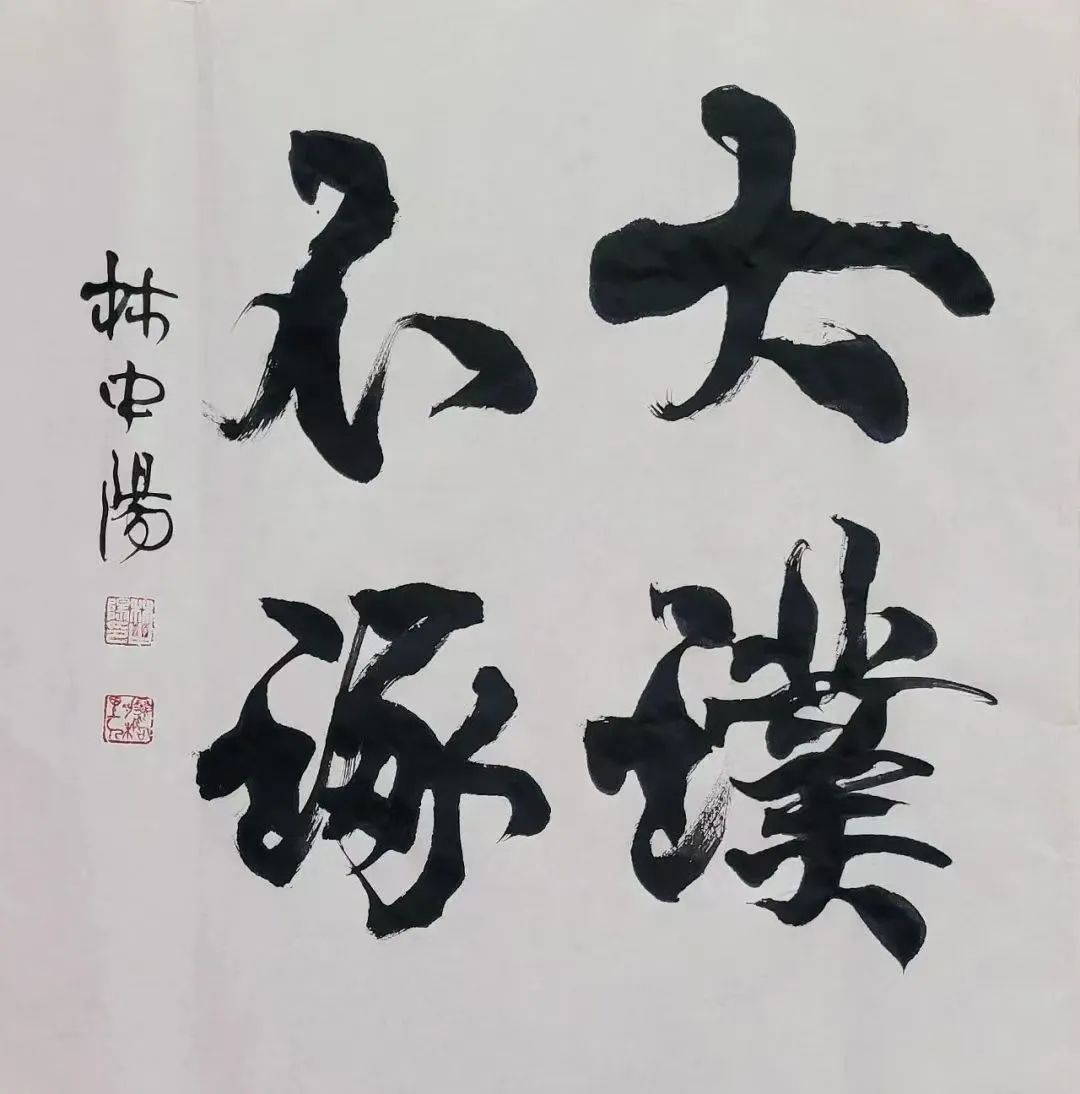 大璞
不琢
林中陽